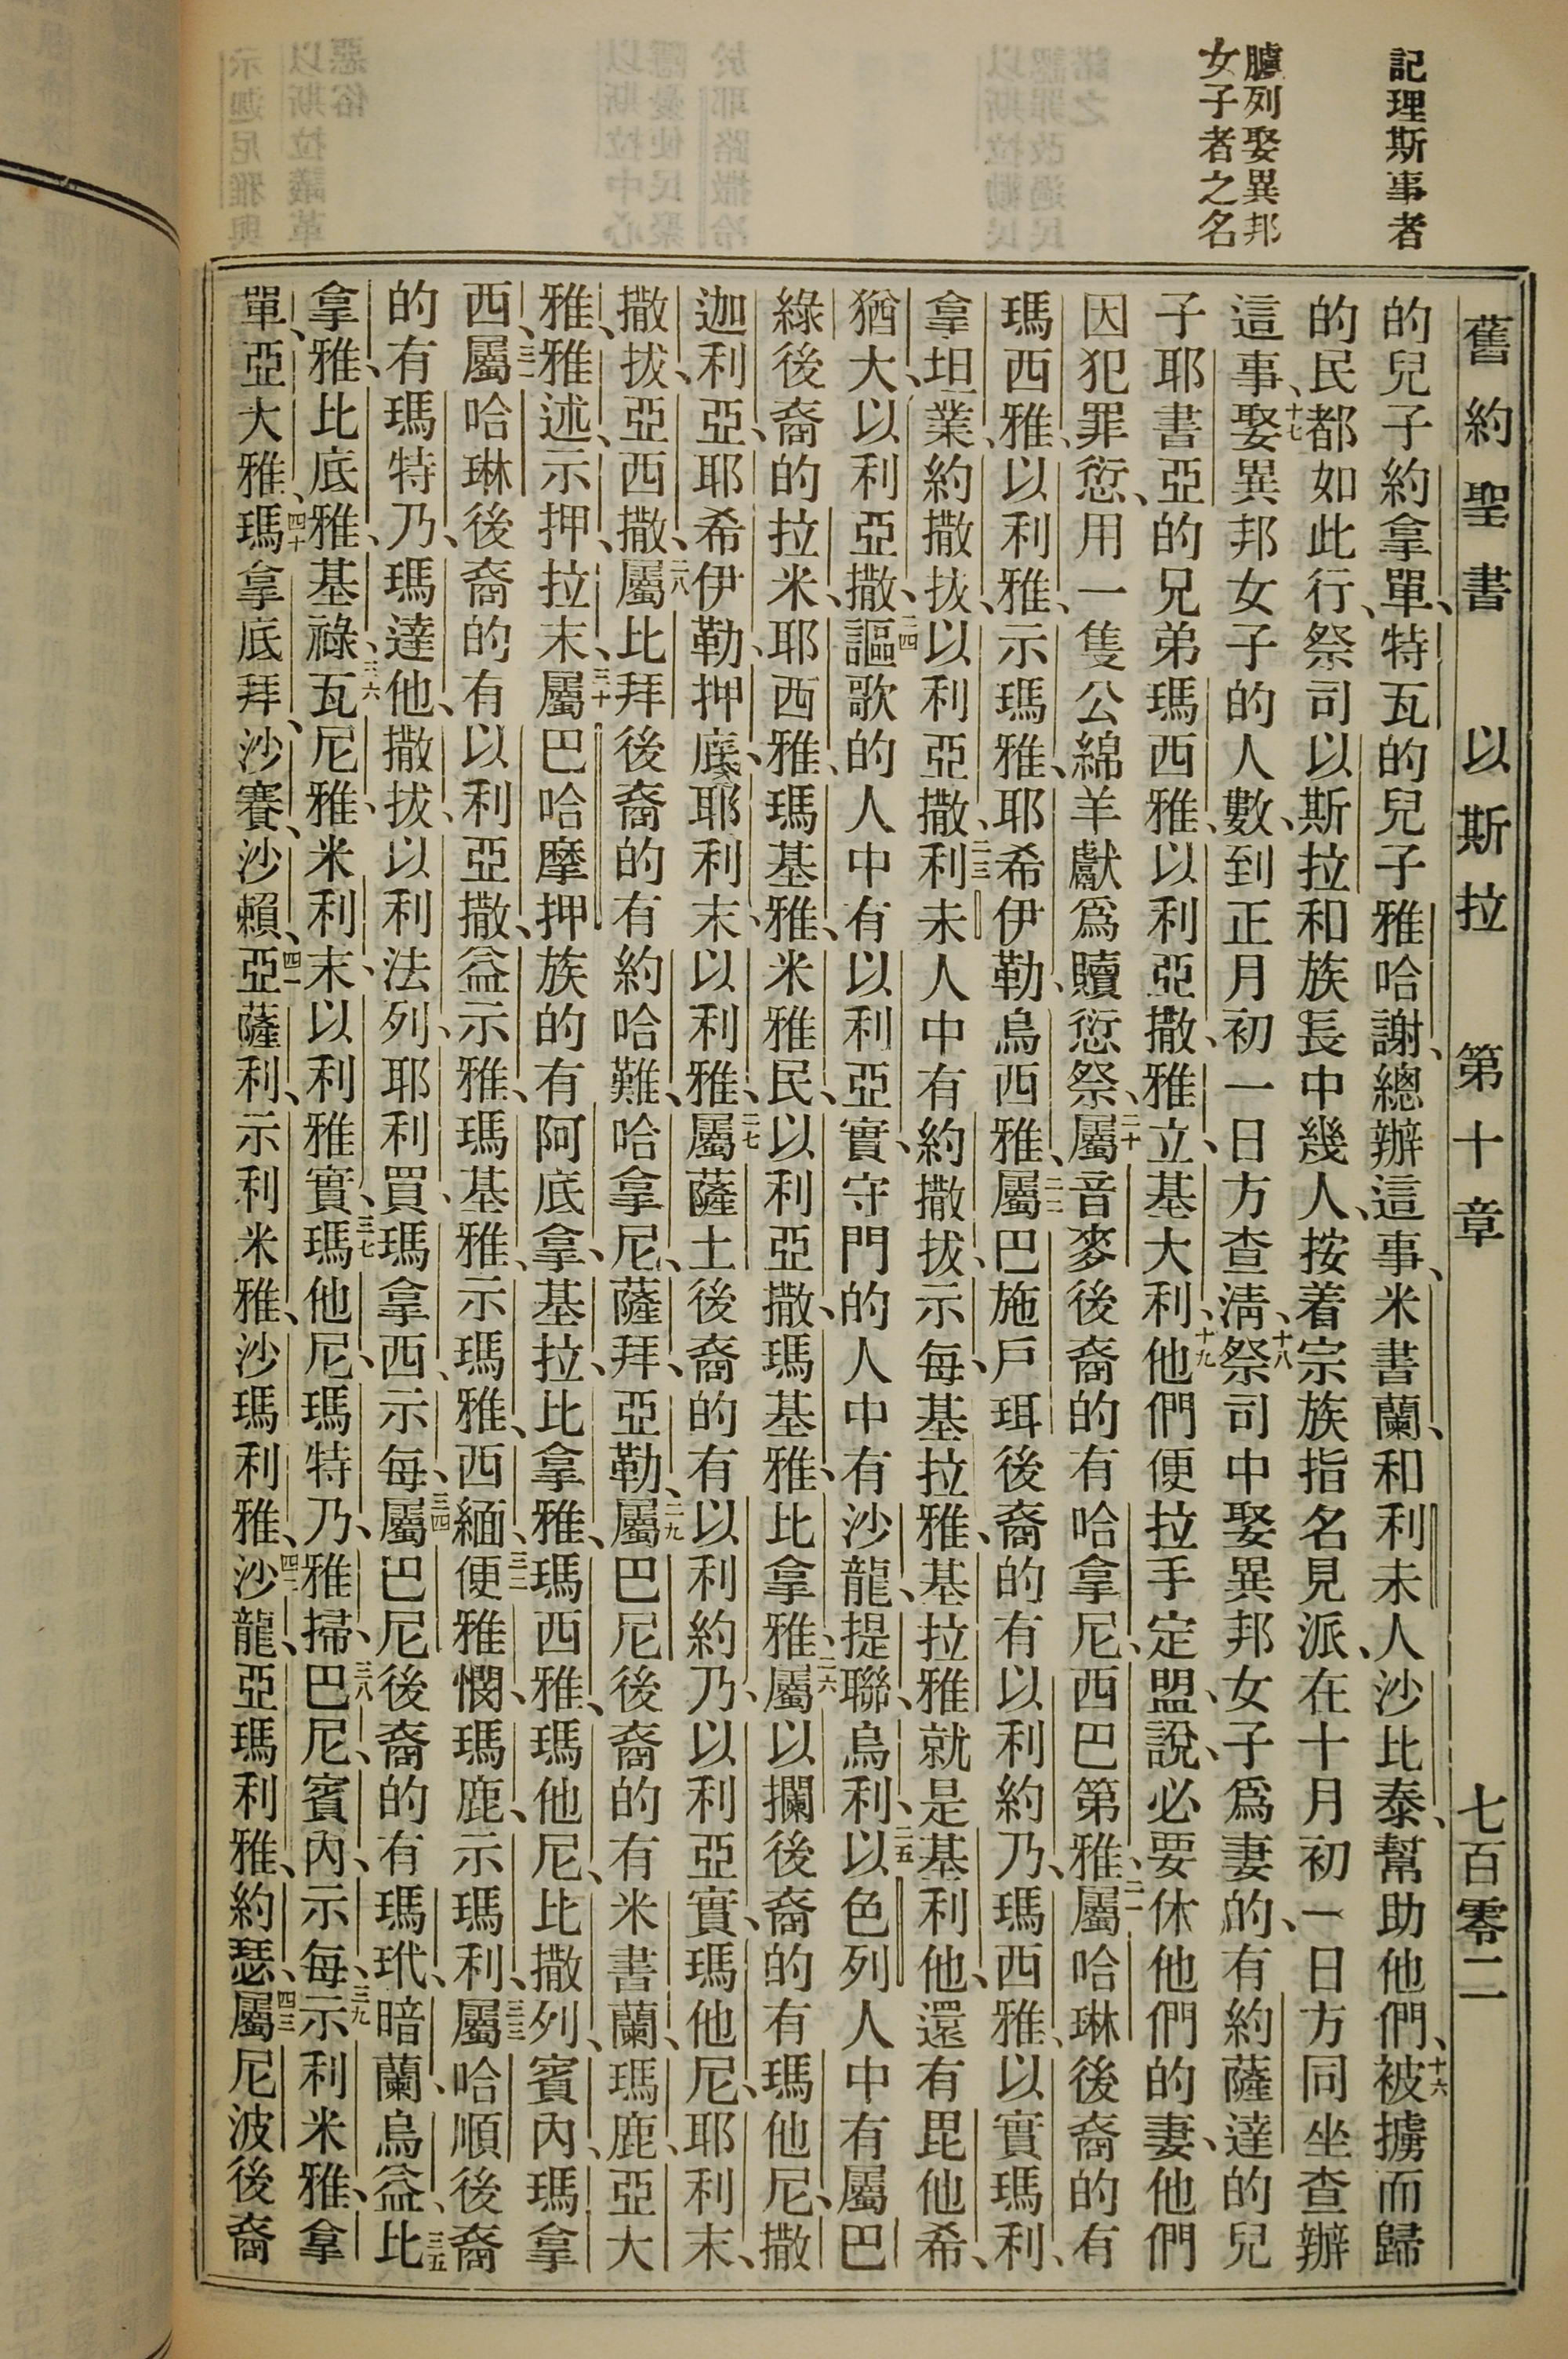 記理斯事者
臚列娶異邦
女子者之名
舊約聖書 以斯拉 第十章 七百零二
的兒子約拿單、特瓦的兒子雅哈謝、總辦這事、米書蘭、和利未人沙比泰、幫助他們、十六被擄而歸
的民都如此行、祭司以斯拉和族長中幾人、按着宗族指名見派、在十月初一日方同坐查辦
這事、十七娶異邦女子的人數、到正月初一日方查淸、十八祭司中娶異邦女子爲妻的、有約薩達的兒
子耶書亞的兄弟瑪西雅、以利亞撒、雅立、基大利、十九他們便拉手定盟、說、必要休他們的妻、他們
因犯罪愆、用一隻公綿羊獻爲贖愆祭、二十屬音麥後裔的有哈拿尼、西巴第雅、二一屬哈琳後裔的有
瑪西雅、以利雅、示瑪雅、耶希伊勒、烏西雅、二二屬巴施戶珥後裔的有以利約乃、瑪西雅、以實瑪利、
拿坦業、約撒拔、以利亞撒、二三利未人中有約撒拔、示每、基拉雅、基拉雅就是基利他、還有毘他希、
猶大、以利亞撒、二四謳歌的人中有以利亞實、守門的人中有沙龍、提聯、烏利、二五以色列人中有屬巴
綠後裔的拉米、耶西雅、瑪基雅、米雅民、以利亞撒、瑪基雅、比拿雅、二六屬以攔後裔的有瑪他尼、撒
迦利亞、耶希伊勒、押底、耶利末、以利雅、二七屬薩土後裔的有以利約乃、以利亞實、瑪他尼、耶利末、
撒拔、亞西撒、二八屬比拜後裔的有約哈難、哈拿尼、薩拜、亞勒、二九屬巴尼後裔的有米書蘭、瑪鹿、亞大
雅、雅述、示押、拉末、三十屬巴哈摩押族的有阿底拿、基拉、比拿雅、瑪西雅、瑪他尼、比撒列、賓內、瑪拿
西、三一屬哈琳後裔的有以利亞撒、益示雅、瑪基雅、示瑪雅、西緬、三二便雅憫、瑪鹿、示瑪利、三三屬哈順後裔
的有瑪特乃、瑪達他、撒拔、以利法列、耶利買、瑪拿西、示每、三四屬巴尼後裔的有瑪玳、暗蘭、烏益、三五比
拿雅、比底雅、基祿、三六瓦尼雅、米利末、以利雅實、三七瑪他尼、瑪特乃、雅掃、三八巴尼、賓內、示每、三九示利米雅、拿
單、亞大雅、四十瑪拿底拜、沙賽、沙賴、四一亞薩利、示利米雅、沙瑪利雅、四二沙龍、亞瑪利雅、約瑟、四三屬尼波後裔